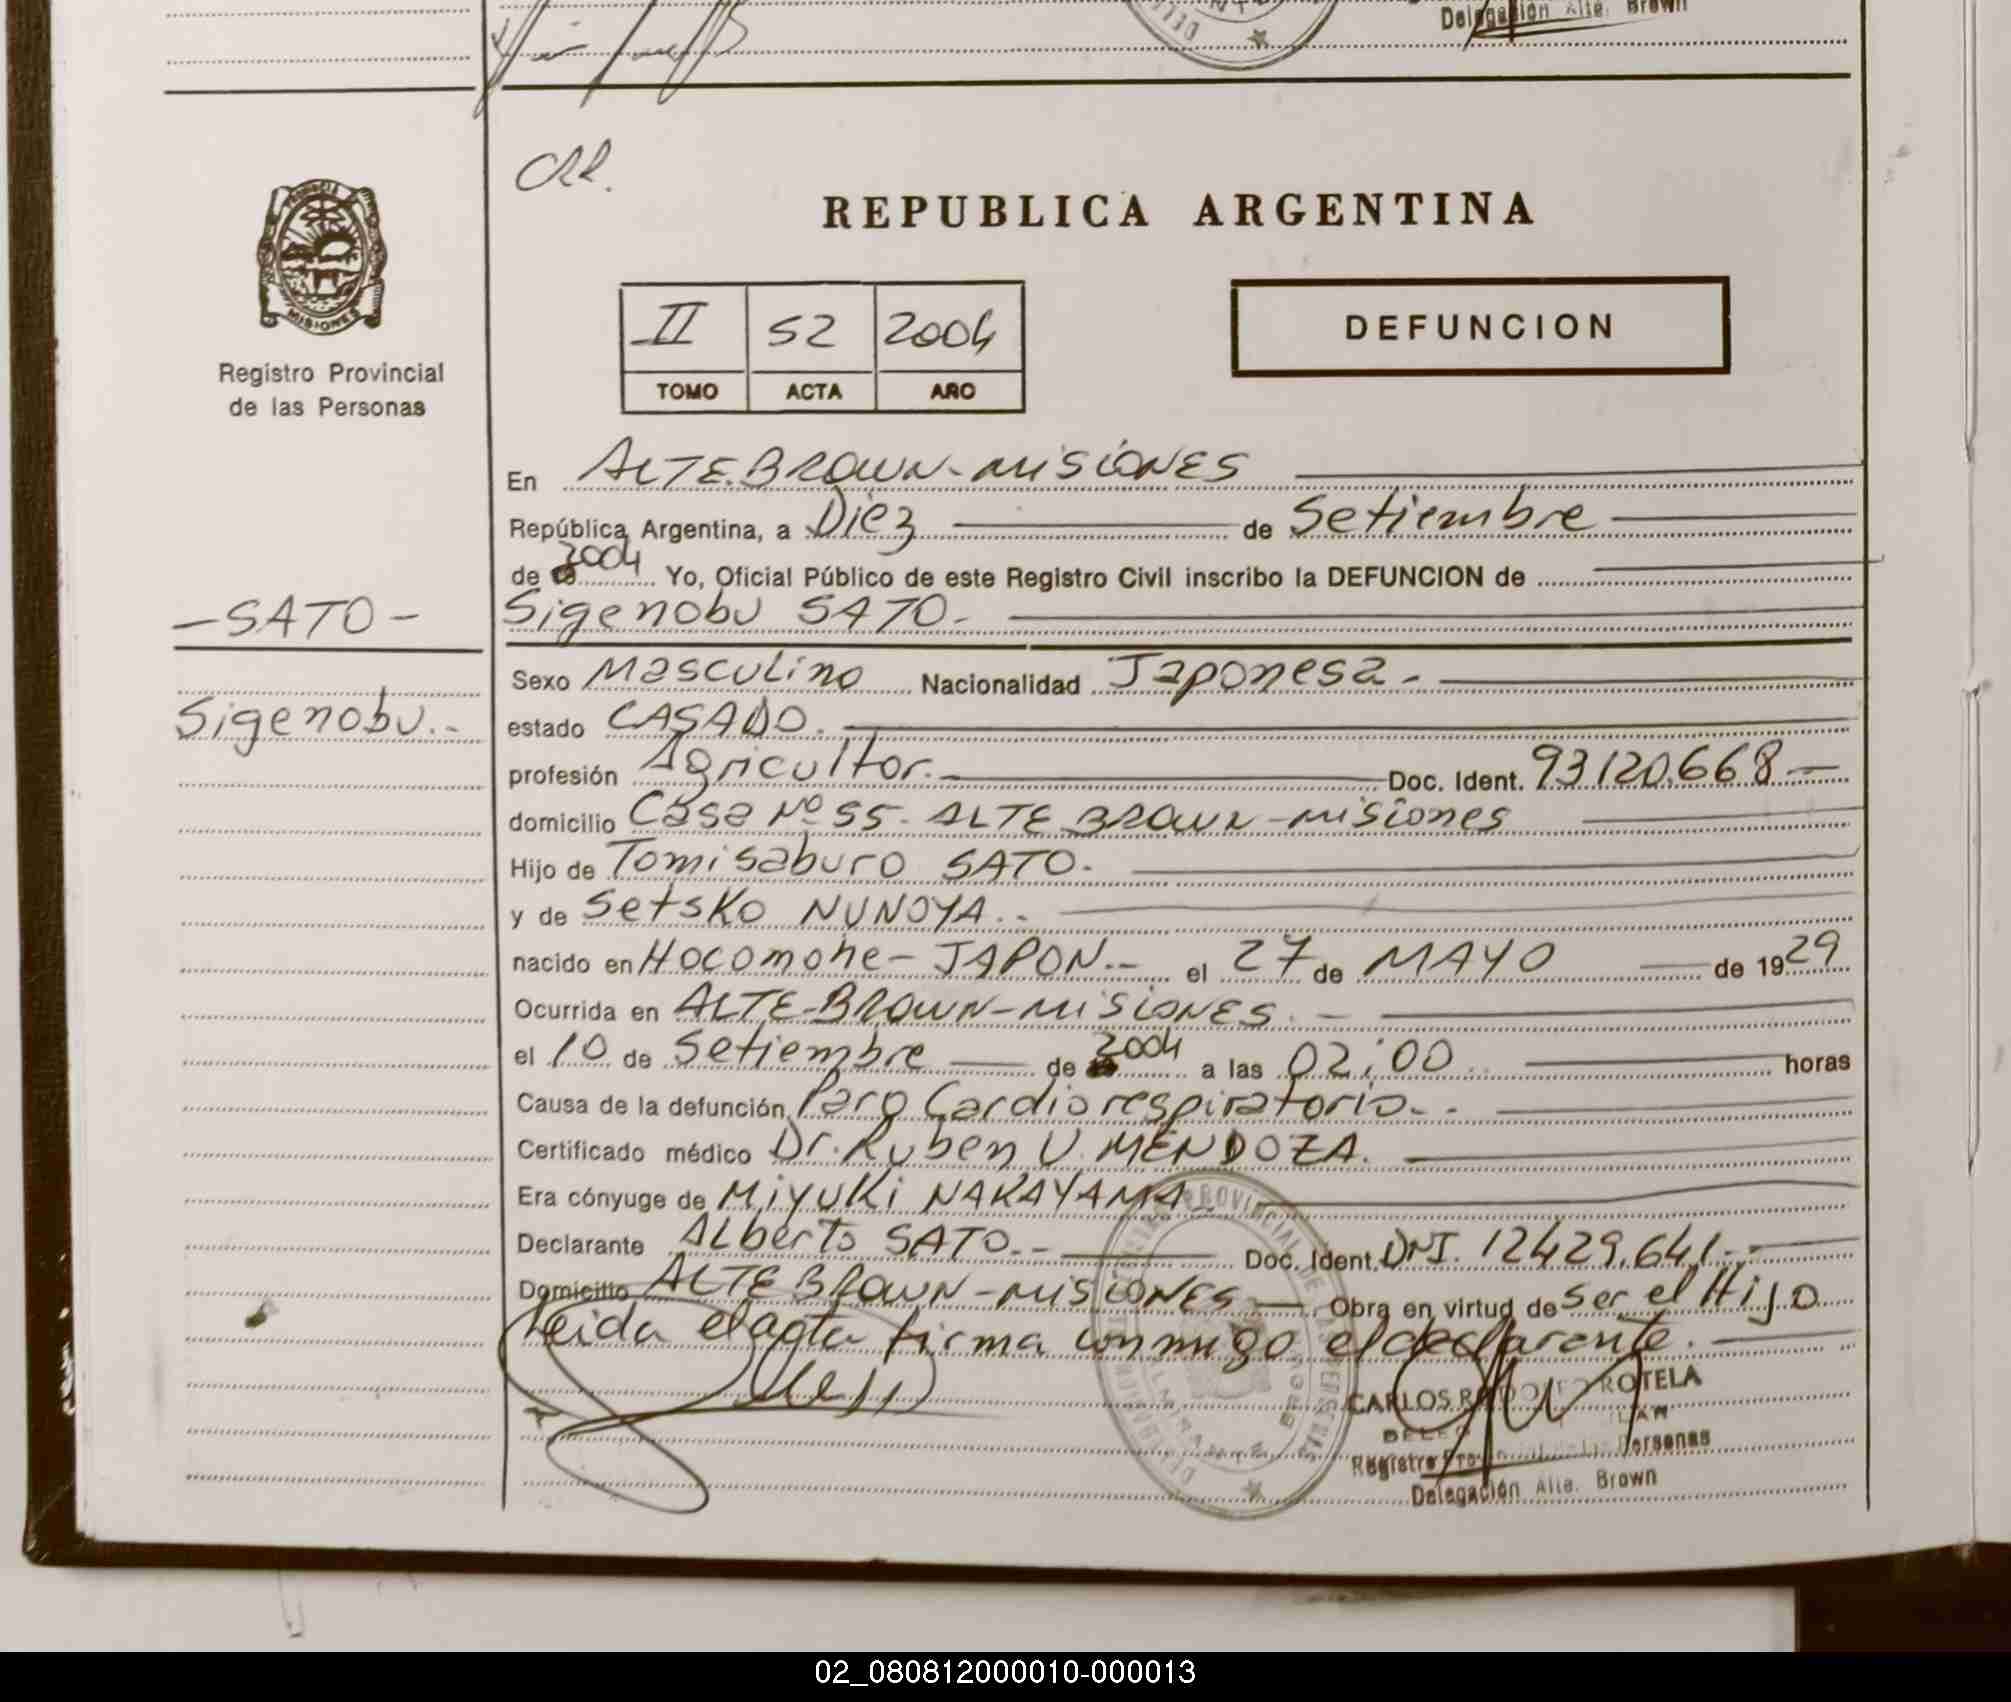 Delegación Alte. Brown
CRR.
REPUBLICA ARGENTINA
II 52 2004
TOMO ACTA AÑO
DEFUNCION
MISIONES
Registro Provincial
de las Personas
En ALTE. BROWN - MISIONES
República Argentina, a Diez de Setiembre
de 2004 Yo, Oficial Público de este Registro Civil inscribo la DEFUNCION de
- SATO -
Sigenobu SATO.-
Sexo Masculino Nacionalidad Japonesa.-
Sigenobu.-
estado CASADO.
profesión Agricultor.- Doc. Ident. 93.120.668 -
domicilio Casa Nº 55 - ALTE BROWN - Misiones
Hijo de Tomisaburo SATO.
y de Setsko NUNOYA..
nacido en Hocomone - JAPON.- el 27 de MAYO de 1929
Ocurrida en ALTE - BROWN - MISIONES. -
el 10 de Setiembre de 2004 a las 02:00 horas
Causa de la defunción Paro Cardiorespiratorio.-
Certificado médico Dr. Ruben V. MENDOZA.
Era cónyuge de Miyuki NAKAYAMA
Declarante Alberto SATO.- Doc. Ident. DNI. 12.429.641.-
Domicilio ALTE BROWN - MISIONES - Obra en virtud de ser el Hijo
Leida el acta firma conmigo el declarante.
CARLOS RODOLFO ROTELA
Registro Provincial de las Personas
Delegación Alte. Brown
02_080812000010-000013